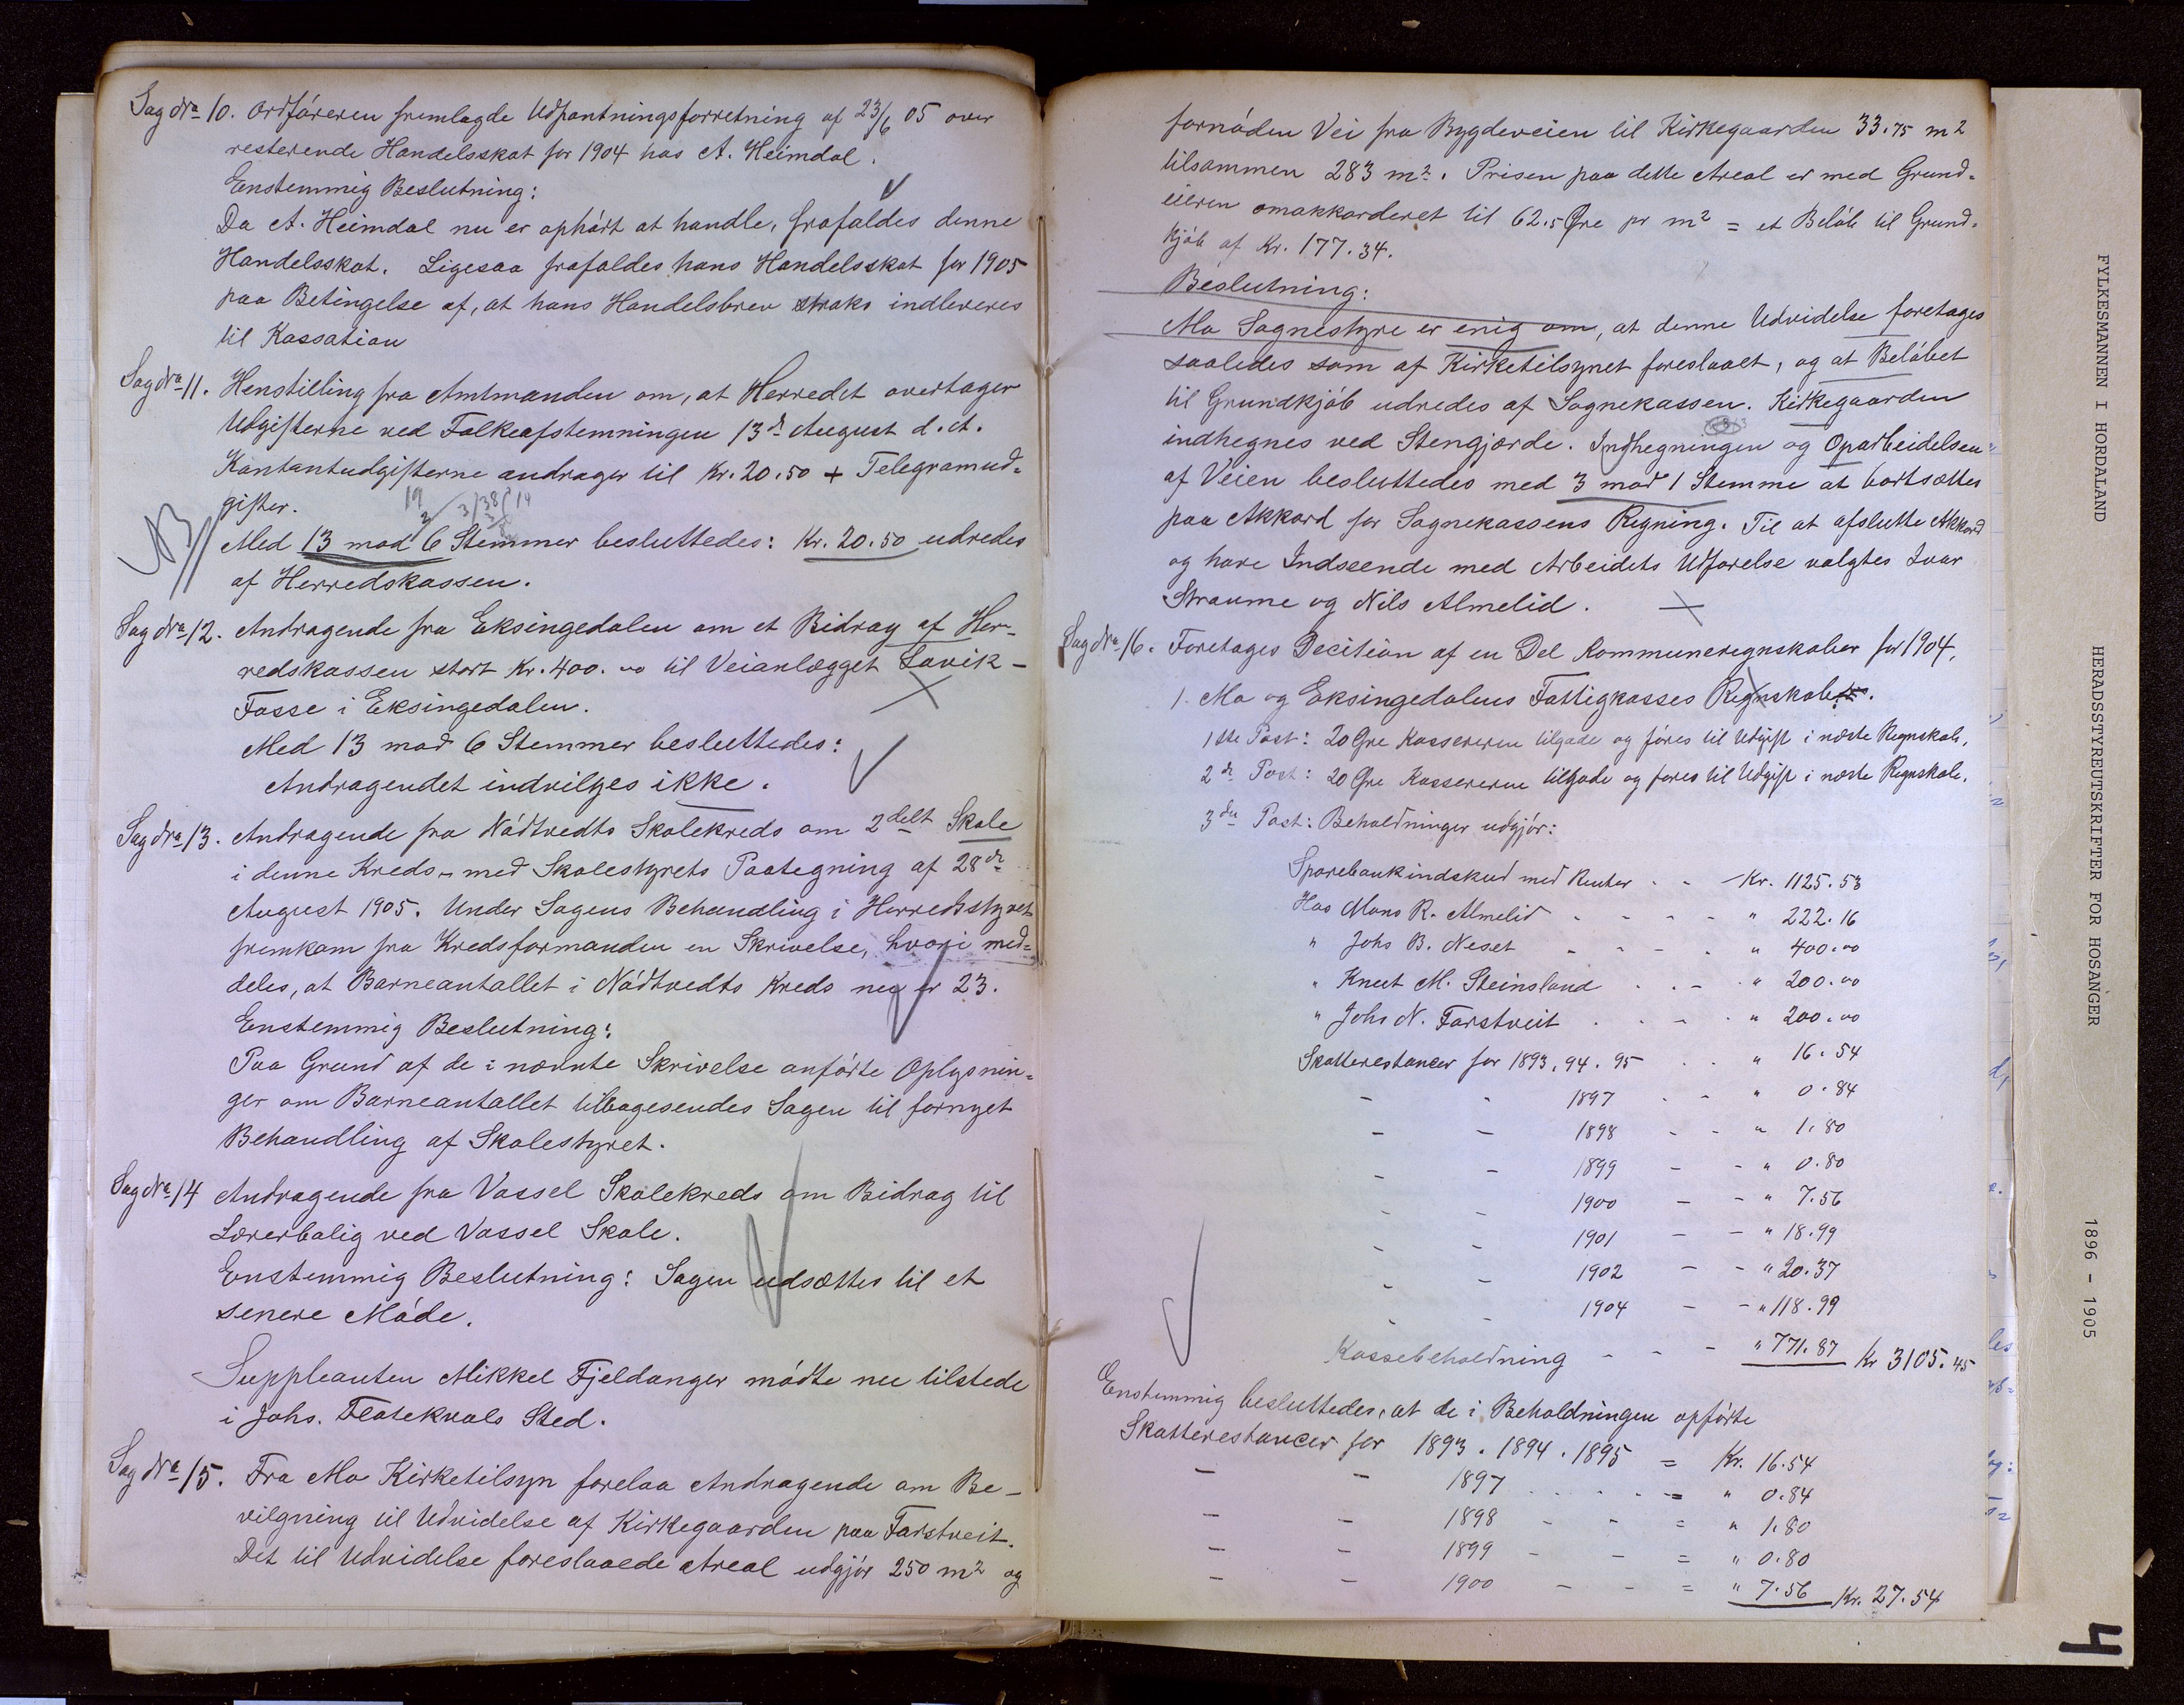 Sag No 10. Ordføreren fremlagde Udpantningsforretning af 23/6 05 over
resterende Handelsskat for 1904 hos A. Heimdal.
Enstemmig Beslutning:
Da A. Heimdal nu er ophørt at handle, frafaldes denne
Handelsskat. Ligesaa frafaldes hans Handelsskat for 1905
paa Betingelse af, at hans Handelsbrev straks indleveres
til Kassation
Sag No 11. Henstilling fra Amtmanden om, at Herredet overtager
Udgifterne ved Folkeafstemningen 13de August d. A.
Kontantudgifterne andrager til Kr. 20.50 + Telegramud-
gifter.
NB
Med 13 mod 6 Stemmer besluttedes: Kr. 20.50 udredes
af Herredskassen.
Sag No 12. Andragende fra Eksingedalen om et Bidrag af Her-
redskassen stort Kr. 400.00 til Veianlægget Lavik-
Fosse i Eksingedalen.
Med 13 mod 6 Stemmer besluttedes:
Andragendet indvilges ikke.
Sag No 13. Andragende fra Nødtvedts Skolekreds om 2delt Skole
i denne Kreds – med Skolestyrets Paategning af 28de
August 1905. Under Sagens Behandling i Herredsstyret
fremkom fra Kredsformanden en Skrivelse, hvori med-
deles, at Barneantallet i Nødtvedts Kreds nu er 23.
Enstemmig Beslutning:
Paa Grund af de i nævnte Skrivelse anførte Oplysnin-
ger om Barneantallet tilbagesendes Sagen til fornyet
Behandling af Skolestyret.
Sag No 14 Andragende fra Vassel Skolekreds om Bidrag til
Lærerbolig ved Vassel Skole.
Enstemmig Beslutning: Sagen udsættes til et
senere Møde.
Suppleanten Mikkel Fjeldanger mødte nu tilstede
i Johs. Flatekvals Sted.
Sag No 15. Fra Mo Kirketilsyn forelaa Andragende om Be-
vilgning til Udvidelse af Kirkegaarden paa Farstveit.
Det til Udvidelse foreslaaede Areal udgjør 250 m2 og
fornøden Vei fra Bygdeveien til Kirkegaarden 33.75 m2
tilsammen 283 m2. Prisen paa dette Areal er med Grund-
eieren omakkorderet til 62.5 Øre pr m2 = et Beløb til Grund-
kjøb af Kr. 177.34.
Beslutning:
Mo Sognestyre er enig om, at denne Udvidelse foretages
saaledes som af Kirketilsynet foreslaaet, og at Beløbet
til Grundkjøb udredes af Sognekassen. Kirkegaarden
indhegnes ved Stengjærde. Indhegningen og Oparbeidelsen
af Veien besluttedes med 3 mod 1 Stemme at bortsættes
paa Akkord for Sognekassens Regning. Til at afslutte Akkord
og have Indseende med Arbeidets Udførelse valgtes Ivar
Straume og Nils Almelid.
Sag No 16. Foretages Decition af en Del Kommuneregnskaber for 1904.
1. Mo og Eksingedalens Fattigkasses Regnskab.
1ste Post: 20 Øre Kassereren tilgode og føres til Udgift i næste Regnskab.
2de Post: 20 Øre Kassereren tilgode og føres til Udgift i næste Regnskab.
3die Post: Beholdninger udgjør:
Sparebankindskud med Renter - - Kr. 1125.53
Hos Mons R. Almelid - - - - " 222.16
" Johs B. Neset - - - - " 400.00
" Knut M. Steinsland - - - " 200.00
" Johs N. Farstveit - - - - " 200.00
Skatterestancer for 1893, 94. 95 - - " 16.54
- - 1897 - - " 0.84
- - 1898 - - " 1.80
- - 1899 - - " 0.80
- - 1900 - - " 7.56
- - 1901 - - " 18.99
- - 1902 - - " 20.37
- - 1904 - - " 118.99
Kassebeholdning - - - " 771.87 Kr 3105.45
Enstemmig besluttedes, at de i Beholdningen opførte
Skatterestancer for 1893. 1894. 1895 = Kr. 16.54
- - 1897 - - - = " 0.84
- - 1898 - - = " 1.80
- - 1899 - - = " 0.80
- - 1900 - - = " 7.56 Kr. 27.54
FYLKESMANNEN I HORDALAND HERADSSTYREUTSKRIFTER FOR HOSANGER 1896 - 1905
4